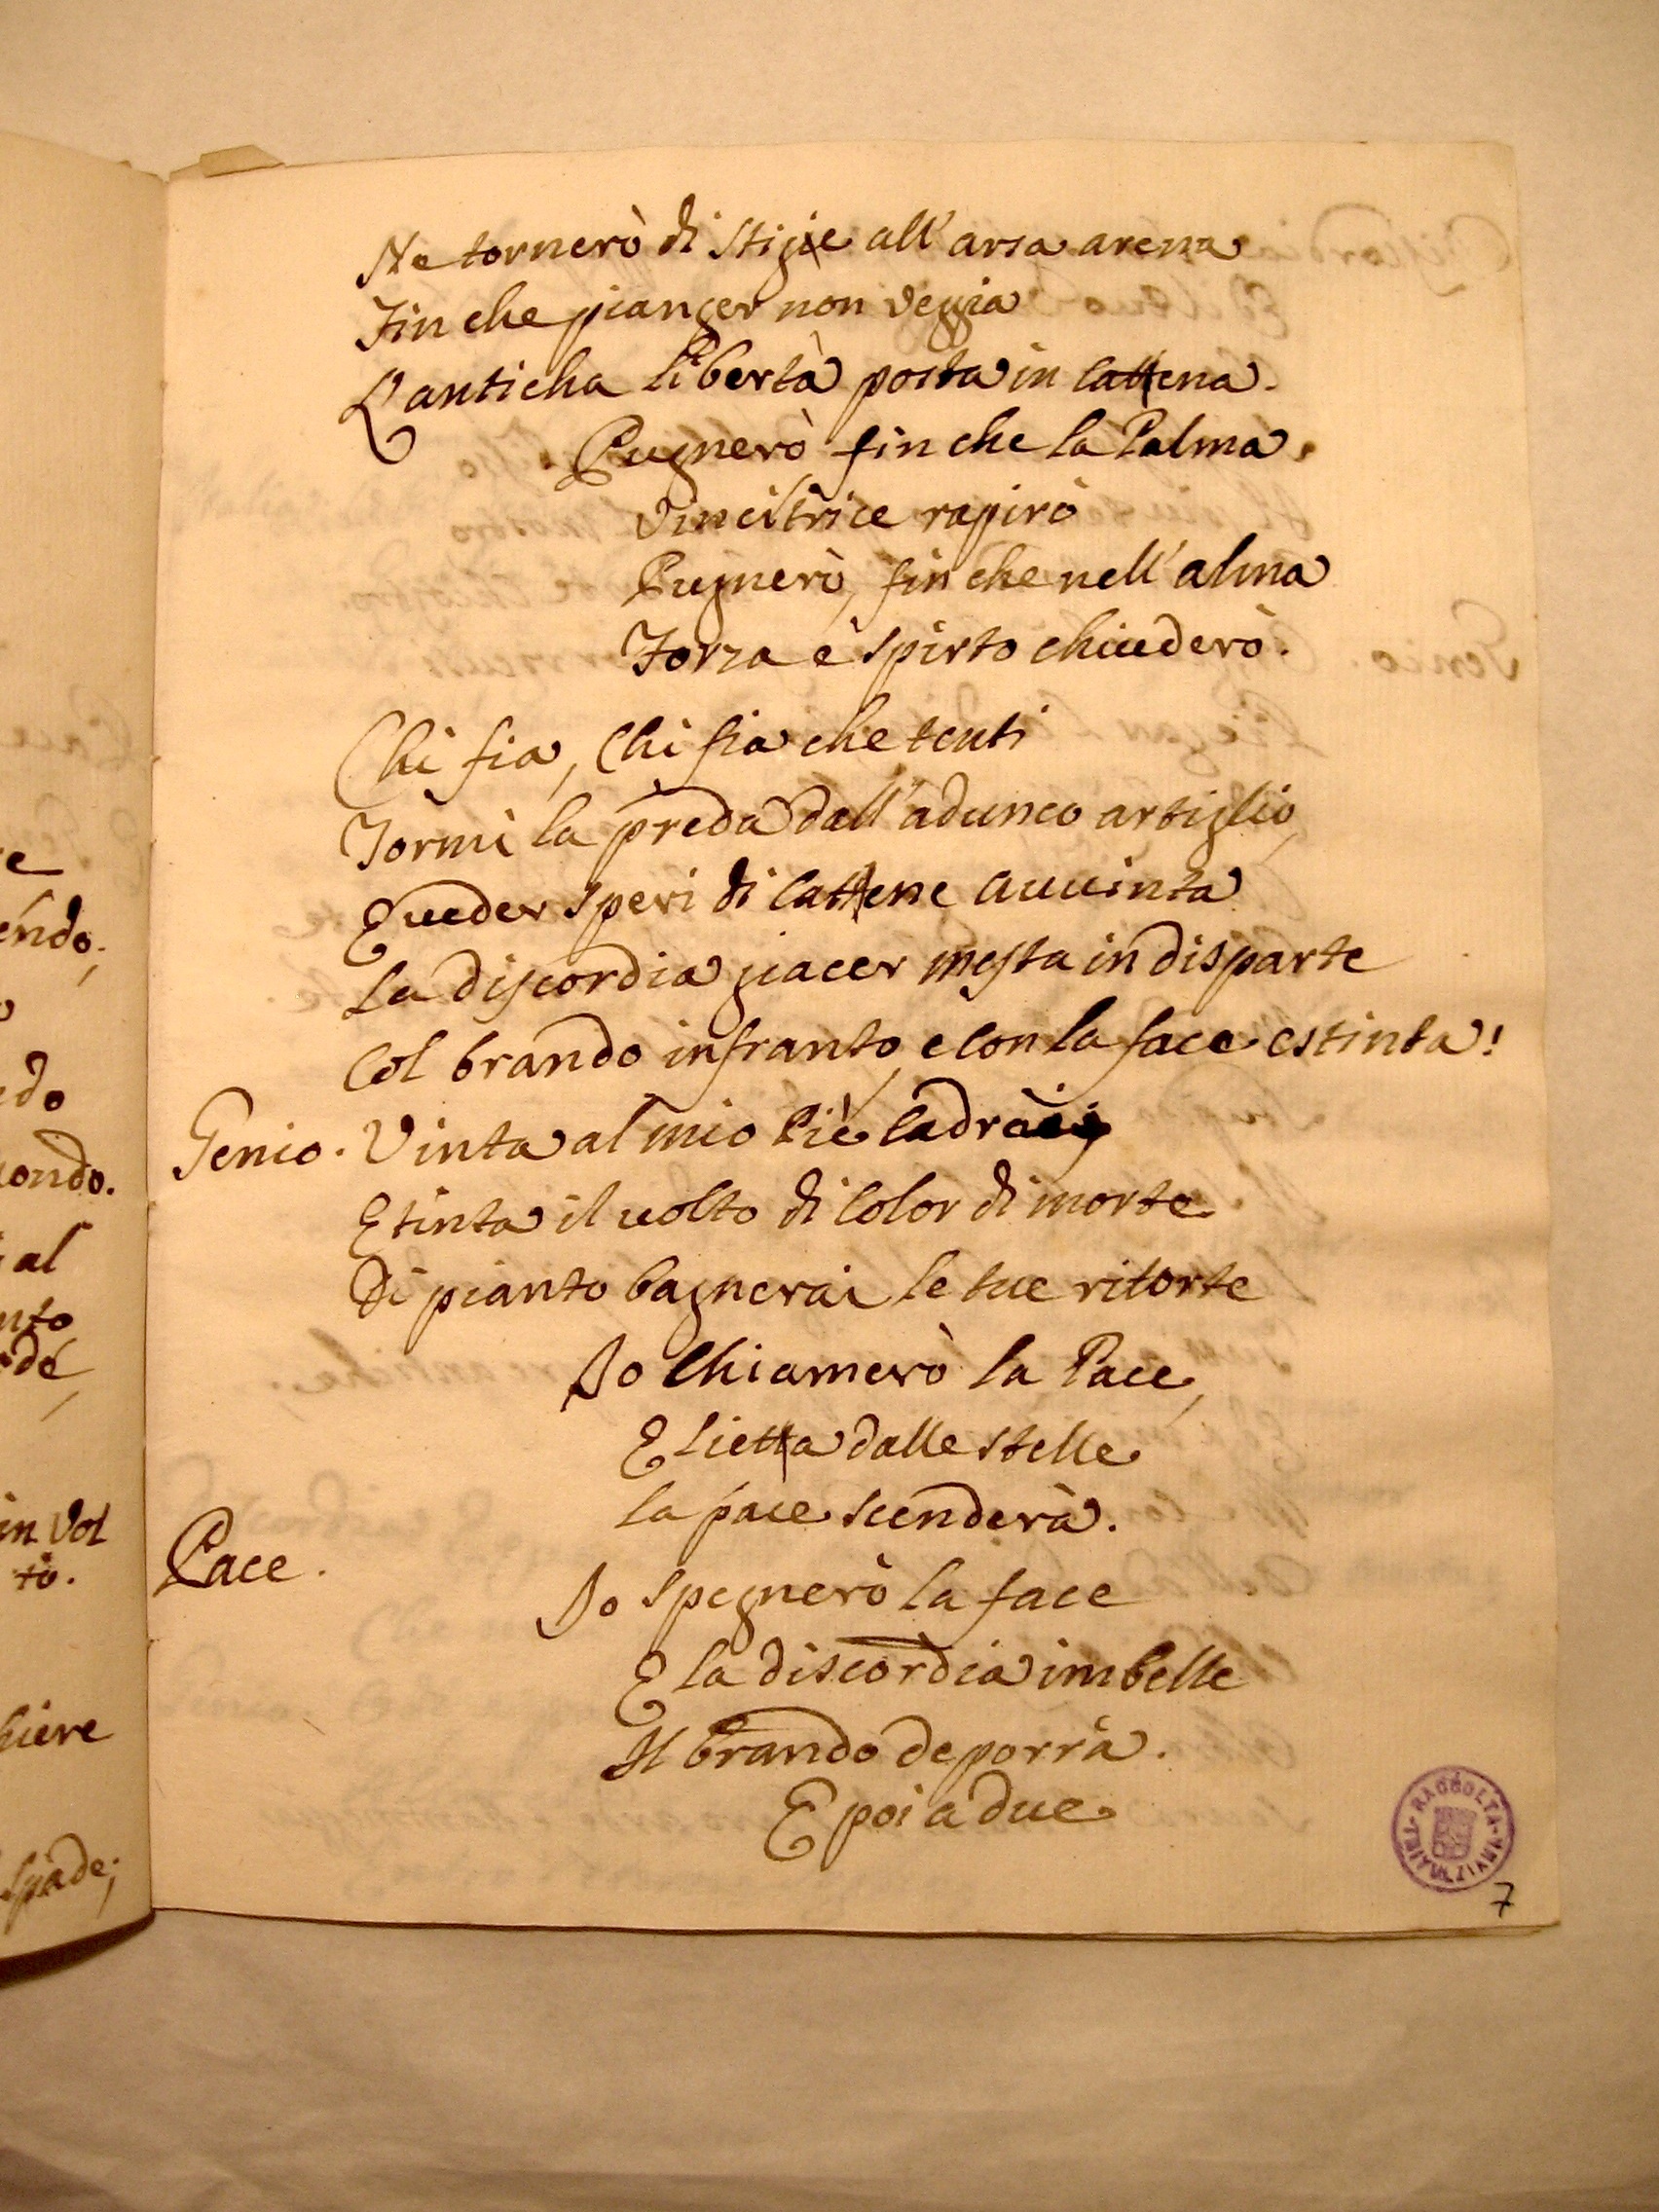 Ne tornerò di Stige all'arsa arena
Fin che pianger non veggia
L'anticha libertà posta in Catena.
Pugnerò fin che la Palma
Vincitrice rapirò
Pugnerò, fin che nell'alma
Forza e spirto chiuderò.
Chi fia, Chi fia che tenti
Tormi la preda dall'adunco artiglio,
E ueder speri di Catene auuinta
La discordia giacer mesta in disparte
Col brando infranto, e con la face estinta!
Genio. Vinta al mio Piè Cadrai
E tinta il uolto di Color di morte
Di pianto bagnerai le tue ritorte
Io Chiamerò la Pace,
E lieta dalle stelle
la pace scenderà.
Pace. Io spegnerò la face
E la discordia imbelle
Il brando deporrà.
E poi a due
RACCOLTA
7
e
endo;
do
ondo.
al
nto
de,
in Vol
to.
hiere
spade;